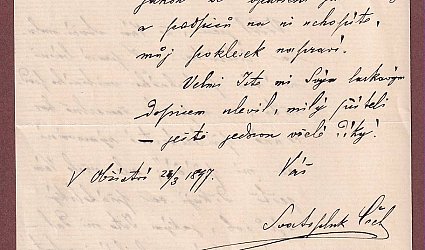 a podpisů na ní nehodíte,
můj poklesek napraví.
Velmi jste mi Svým laskavým
dopisem ulevil, milý příteli
– ještě jednou vřelé díky!
V Obříství 26/3 1897. Váš
Svatopluk Čech